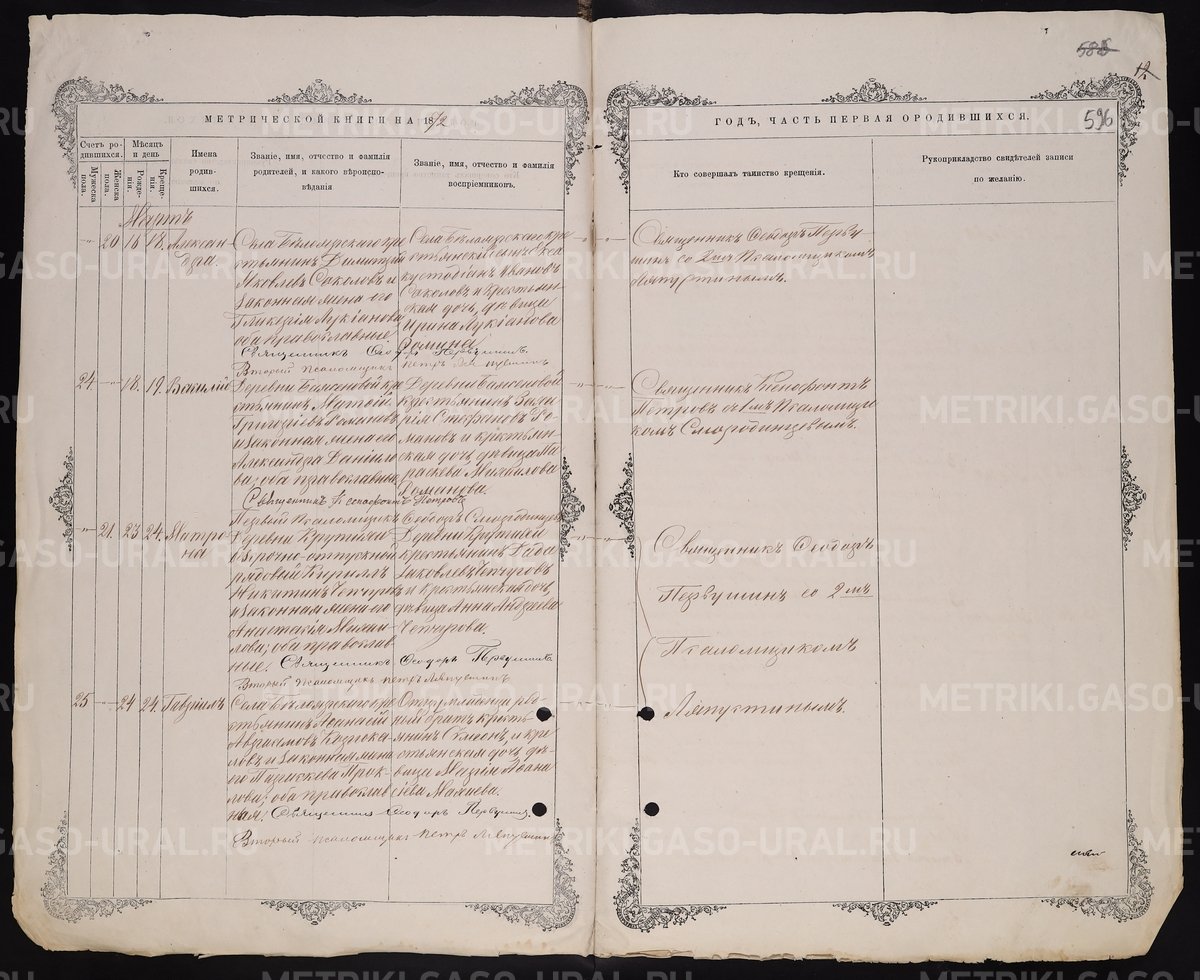 585
12
МЕТРИЧЕСКОЙ КНИГИ НА 1872
ГОДЪ, ЧАСТЬ ПЕРВАЯ О РОДИВШИХСЯ.
596
Счетъ родившихся.
Мужеска пола.
Женска пола.
Мѣсяцъ и день
Рожденія.
Крещенія.
Имена родившихся.
Званіе, имя, отчество и фамилія родителей, и какого вѣроисповѣданія
Званіе, имя, отчество и фамилія воспріемниковъ.
Кто совершалъ таинство крещенія.
Рукоприкладство свидѣтелей записи по желанію.
Мартъ
20 16 18. Александра
Села Бѣлоярскаго крестьянинъ Димитрій
Яковлевъ Соколовъ и
законная жена его
Гликерія Лукіанова
оба православные
Села Бѣлоярскаго крестьянскій сынъ
Иванов
Соколовъ и крестьянская дочь, дѣвица
Ирина Лукіанова
Священникъ Ѳеодоръ Первушинъ со 2мъ Псаломщикомъ
Ляпустинымъ.
Священникъ Ѳеодоръ Первушинъ.
Второй псаломщикъ Петръ Ляпустинъ
24 18. 19. Василій
Деревни Баженовой крестьянинъ Матѳій
Григоріевъ Романовъ
и законная жена его
Александра Данилова; оба православные
Деревни Баженовой
крестьянинъ
Стефановъ Романовъ и крестьянская дочь, дѣвица Параскева Михаилова
Романова.
Священникъ Ксенофонтъ
Петровъ съ 1мъ Псаломщикомъ Смородинцевымъ.
Священникъ Ксенофонтъ Петровъ
Первый Псаломщикъ Ѳеодоръ Смородинцевъ
21. 23 24. Матрона
Деревни Крутихи
безсрочно-отпускной
рядовый Кириллъ
Никитинъ Чепчуговъ
и законная жена его
Анастасія Михаилова; оба православные.
Деревни Крутихи
крестьянинъ
Яковлевъ Чепчуговъ
и крестьянская дочь,
дѣвица Анна Андреева
Чепчугова.
Священникъ Ѳеодоръ
Первушинъ со 2мъ
Псаломщикомъ
Ляпустинымъ.
Священникъ Ѳеодоръ Первушинъ
Второй псаломщикъ Петръ Ляпустинъ
25 24 24. Гавріилъ
Села Бѣлоярскаго крестьянинъ Аѳанасій
Авраамовъ
и законная жена
его Параскева
оба православные.
братъ крестьянинъ Симеонъ, и крестьянская дочь, дѣвица Марія
Священникъ Ѳеодоръ Первушинъ.
Второй псаломщикъ Петръ Ляпустинъ
METRIKI.GASO-URAL.RU